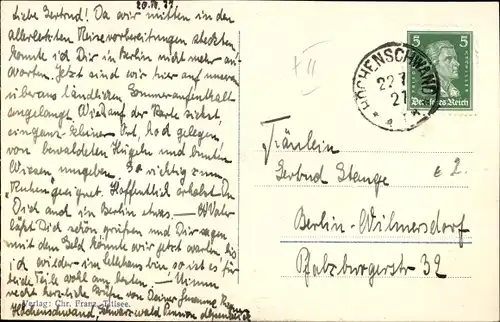 Liebe Gertrud! Da wir mitten in den
allerletzten Reisevorbereitungen steckten
konnte ich Dir in Berlin nicht mehr ant-
worten. Jetzt sind wir hier auf unserem
überaus ländlichen Sommeraufenthalt
angelangt. Wie auf der Karte siehst,
ein ganz kleiner Ort, hoch gelegen,
von bewaldeten Hügeln und bunten
Wiesen umgeben. So richtig zum
Ruhen geeignet. Hoffentlich erholst Du
Dich auch in Berlin etwas. — Vater
läßt Dich schön grüßen und Dir sagen
mit dem Geld könnte wir jetzt warten, bis
ich wieder in so ist es für
beide Teile wohl am besten. — Nimm
recht herzliche Grüße von Deiner
Höchenschwand, Schwarzwald Pension
Verlag: Chr. Franz, Titisee.
5 5
Deutsches Reich
HÖCHENSCHWAND
Fräulein
Gertrud Stange
Berlin-Wilmersdorf
Pfalzburgerstr 32